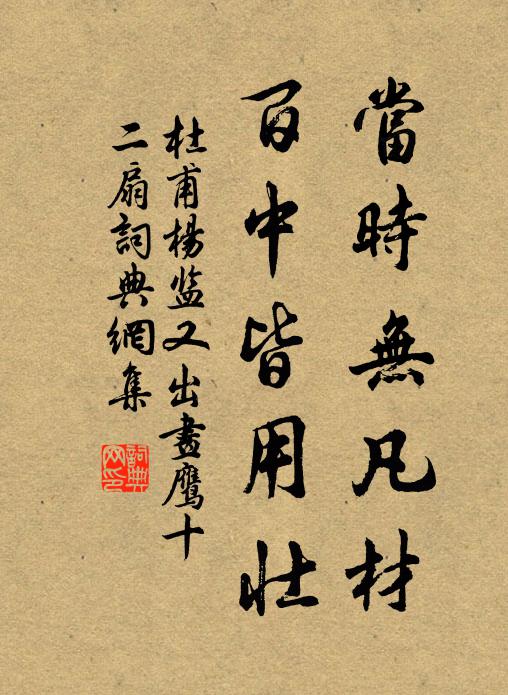 當時無凡材
百中皆用壯
杜甫楊监又出畫鹰十
二扇詞典網集
詞典
网印